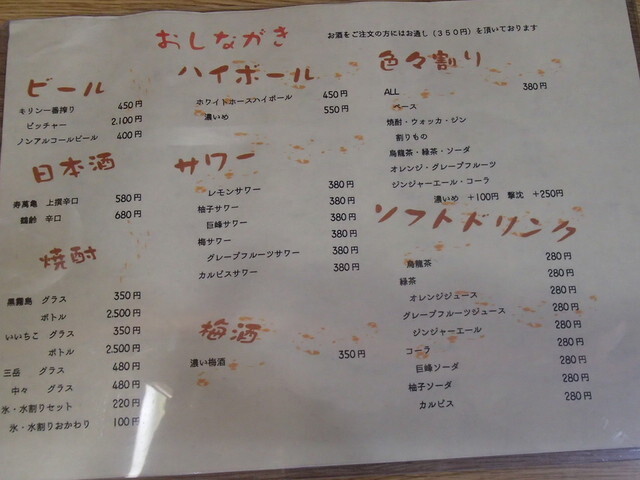 おしながき
お酒をご注文の方にはお通し(350円)を頂いております
ビール
キリン一番搾り 450円
ピッチャー 2.100円
ノンアルコールビール 400円
日本酒
寿萬亀 上撰辛口 580円
鶴齢 辛口 680円
焼酎
黒霧島 グラス 350円
ボトル 2.500円
いいちこ グラス 350円
ボトル 2.500円
三岳 グラス 480円
中々 グラス 480円
氷・水割りセット 220円
氷・水割りおかわり 100円
ハイボール
ホワイトホースハイボール 450円
濃いめ 550円
サワー
レモンサワー 380円
柚子サワー 380円
巨峰サワー 380円
梅サワー 380円
グレープフルーツサワー 380円
カルピスサワー 380円
梅酒
濃い梅酒 350円
色々割り
ALL 380円
ベース
焼酎・ウォッカ・ジン
割りもの
烏龍茶・緑茶・ソーダ
オレンジ・グレープフルーツ
ジンジャーエール・コーラ
濃いめ +100円 撃沈 +250円
ソフトドリンク
烏龍茶 280円
緑茶 280円
オレンジジュース 280円
グレープフルーツジュース 280円
ジンジャーエール 280円
コーラ 280円
巨峰ソーダ 280円
柚子ソーダ 280円
カルピス 280円